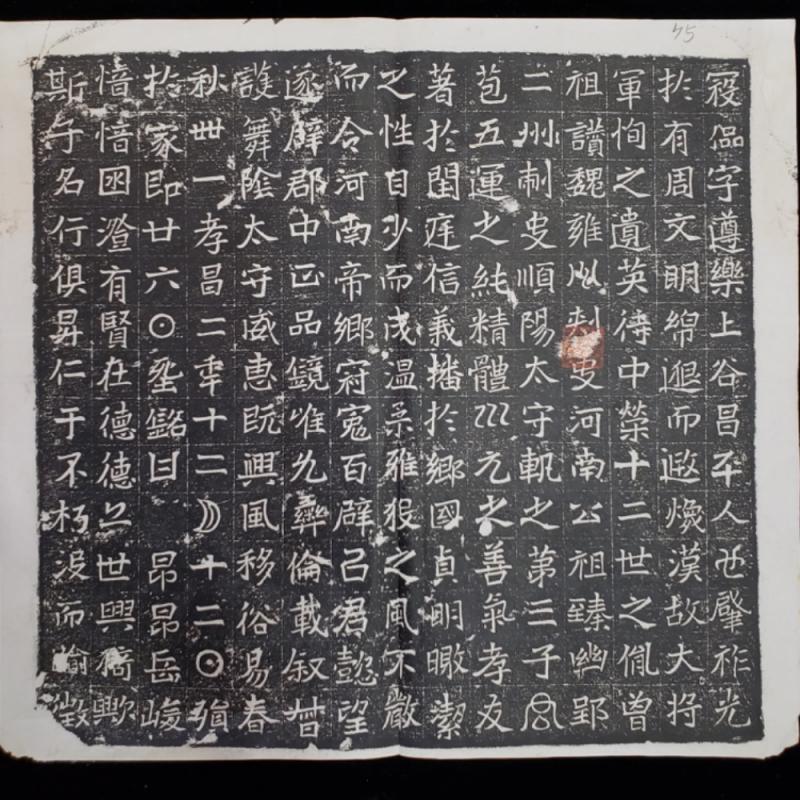 寇偘字遵樂上谷昌平人也肇祚光
於有周文明綿邈而遐煥漢故大将
軍恂之遺英侍中榮十二世之胤曾
祖讃魏雍州刾史河南公祖臻幽郢
二州刾史順陽太守軌之第三子
苞五運之純精體巛元之善氣孝友
著於閨庭信義播於鄉國貞明暾潔
之性自少而成温柔雅之風不嚴
而合河南帝鄉冠冕百辟召君懿望
遂辟郡中正品鏡唯允彝倫載叙
護舞陰太守威惠既興風移俗易春
秋卌一孝昌二年十二月十二日殞
於家即廿六日塟銘曰 昂昂岳峻
愔愔囦澄有賢在德德之世興猗歟
斯子名行俱昇仁于不朽没而徵